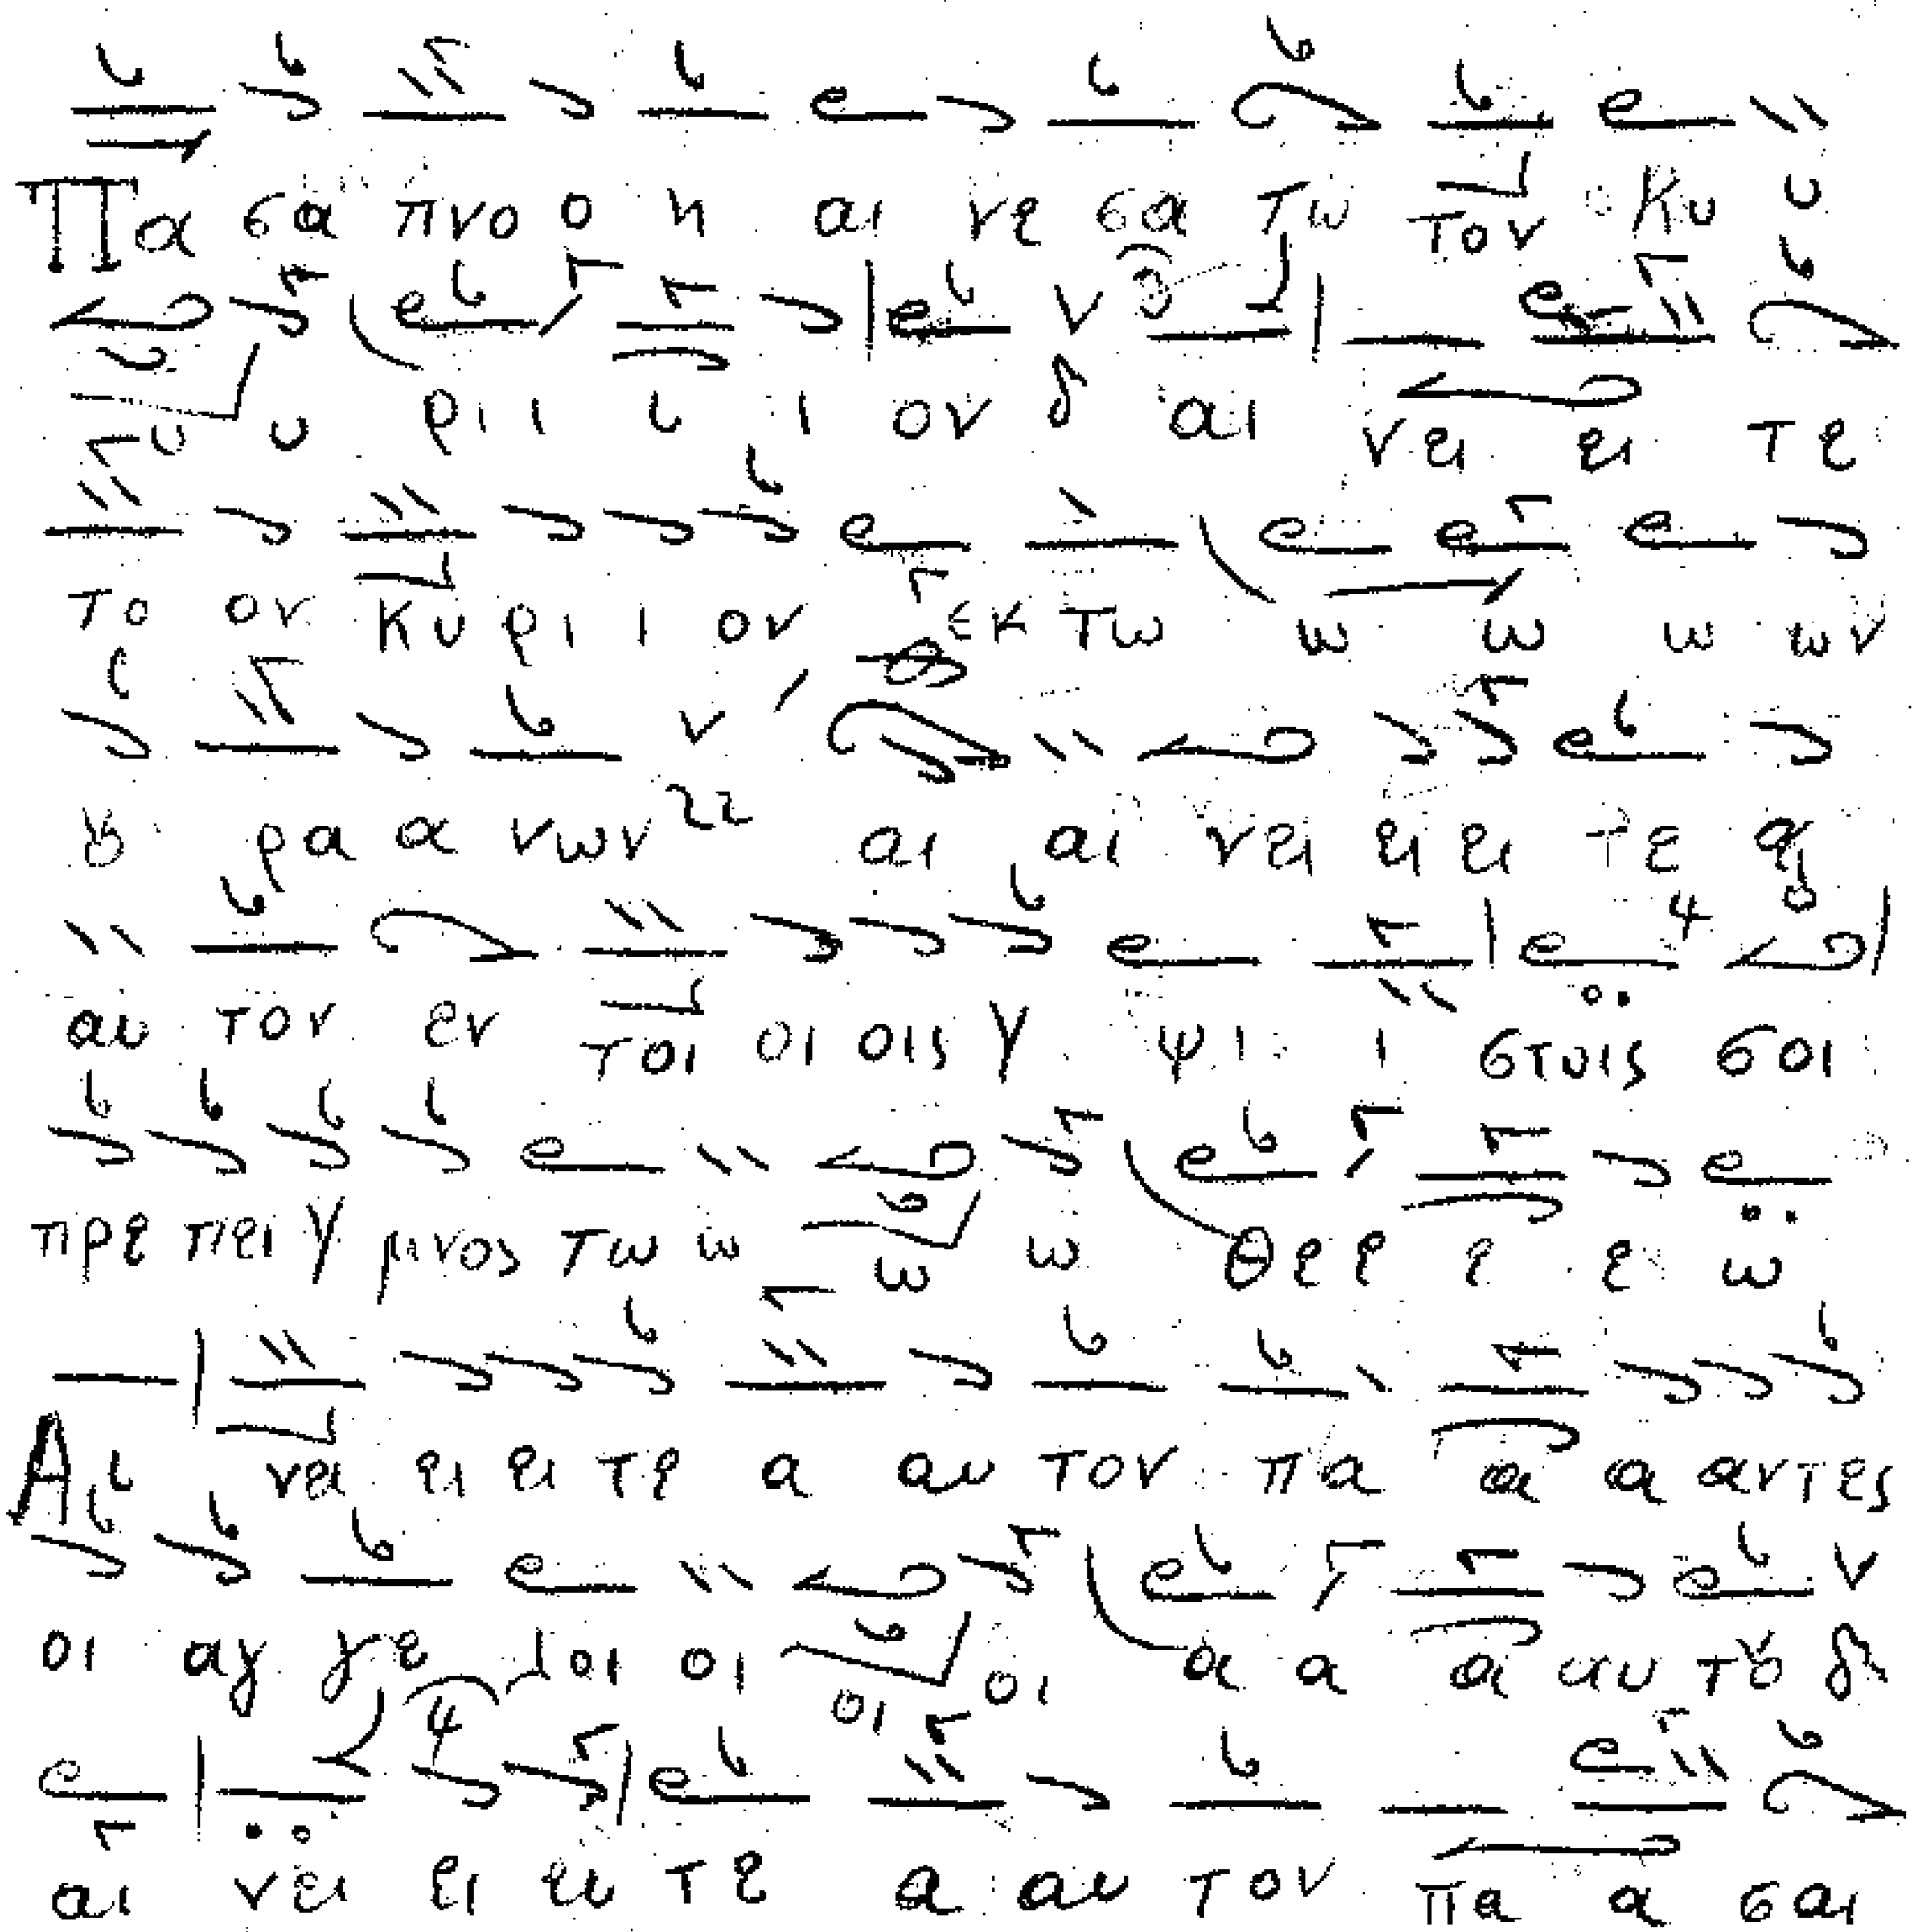 Πα σα πνο ο η αι νε σα τω τον Κυ υ
υ υ ρι ι ι ι ον δ αι νει ει τε
το ον Κυ ρι ι ον εκ τω ω ω ω ων
ȣ ρα α νων αι αι νει ει ει τε α
αυ τον εν τοι οι οις Υ ψι ι στοις σοι
πρε πει Υ μνος τω ω ω ω Θε ε ε ε ω
Αι νει ει ει τε α αυ τον πα α α αντες
οι αγ γε λοι οι οι οι α α α αυ τȣ δ
αι νει ει ει τε α αυ τον πα α σαι